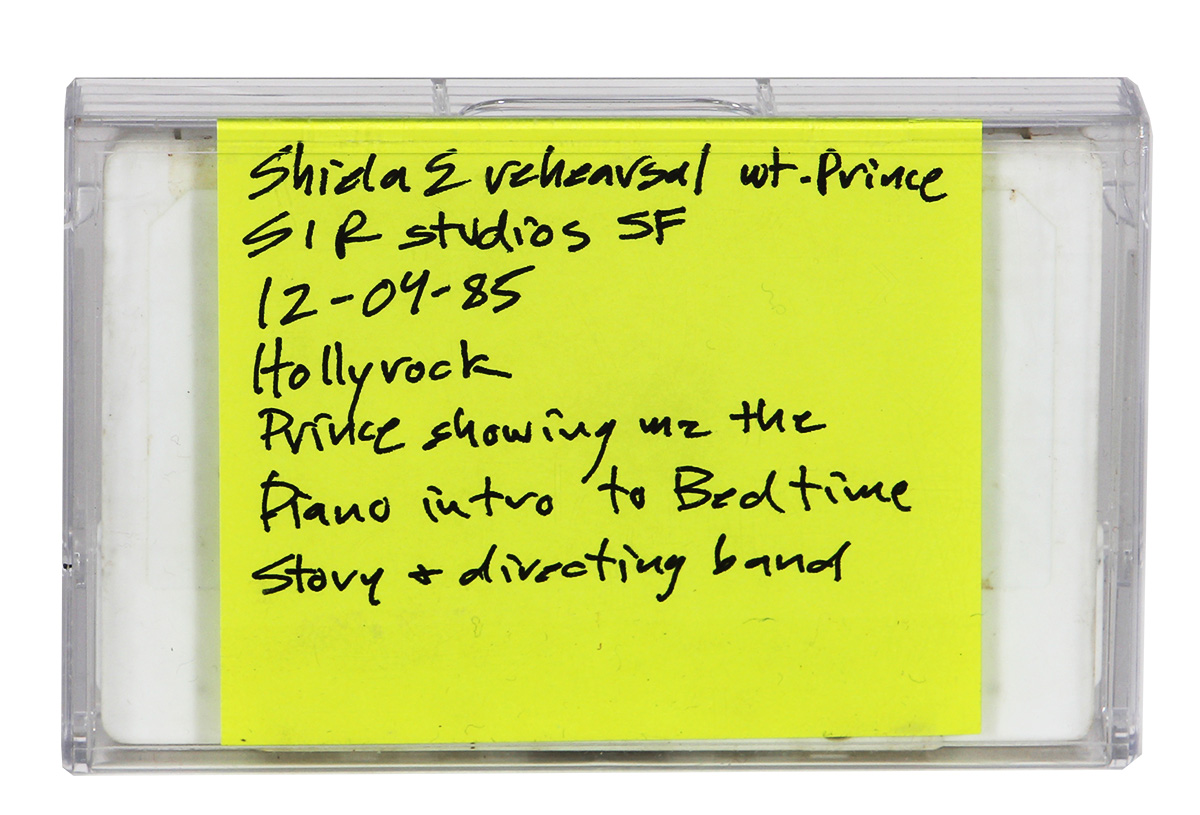 Shiela E rehearsal wt. Prince
SIR studios SF
12-04-85
Hollyrock
Prince showing me the
Piano intro to Bedtime
Story + directing band